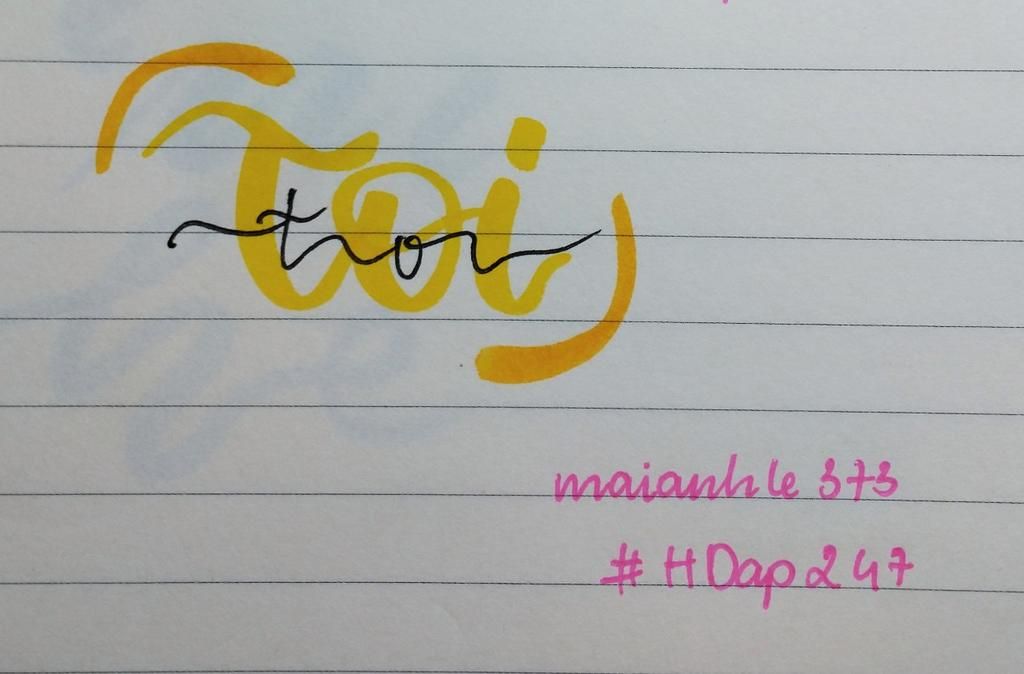 Toi
toi
maianhle 373
#HDap247